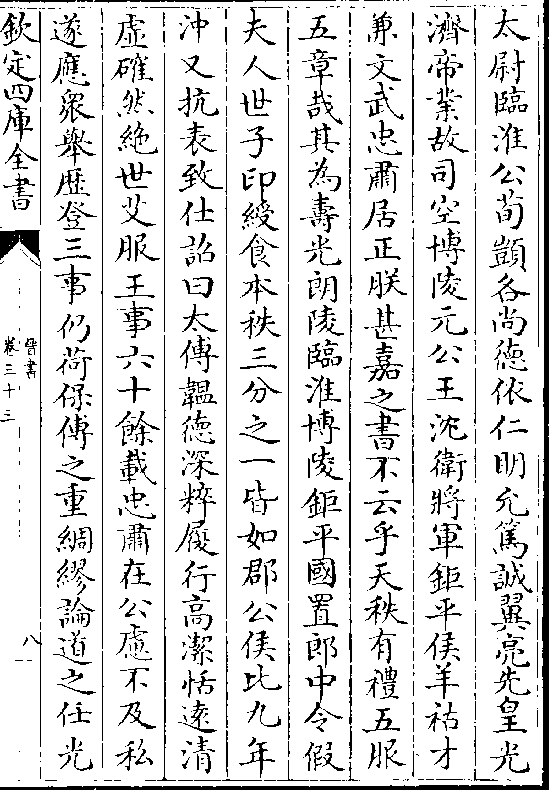 太尉臨淮公荀顗各尚徳依仁明允篤誠翼亮先皇光
濟帝業故司空博陵元公王沈衛將軍鉅平侯羊祜才
兼文武忠肅居正朕甚嘉之書不云乎天秩有禮五服
五章哉其為壽光朗陵臨淮博陵鉅平國置郎中令假
夫人世子印綬食本秩三分之一皆如郡公侯比九年
沖又抗表致仕詔曰太傅韞徳深粹履行高潔恬逺清
虛確然絶世艾服王事六十餘載忠肅在公慮不及私
遂應衆舉歴登三事仍荷保傅之重綢繆論道之任光
欽定四庫全書
晉書
卷三十三
八